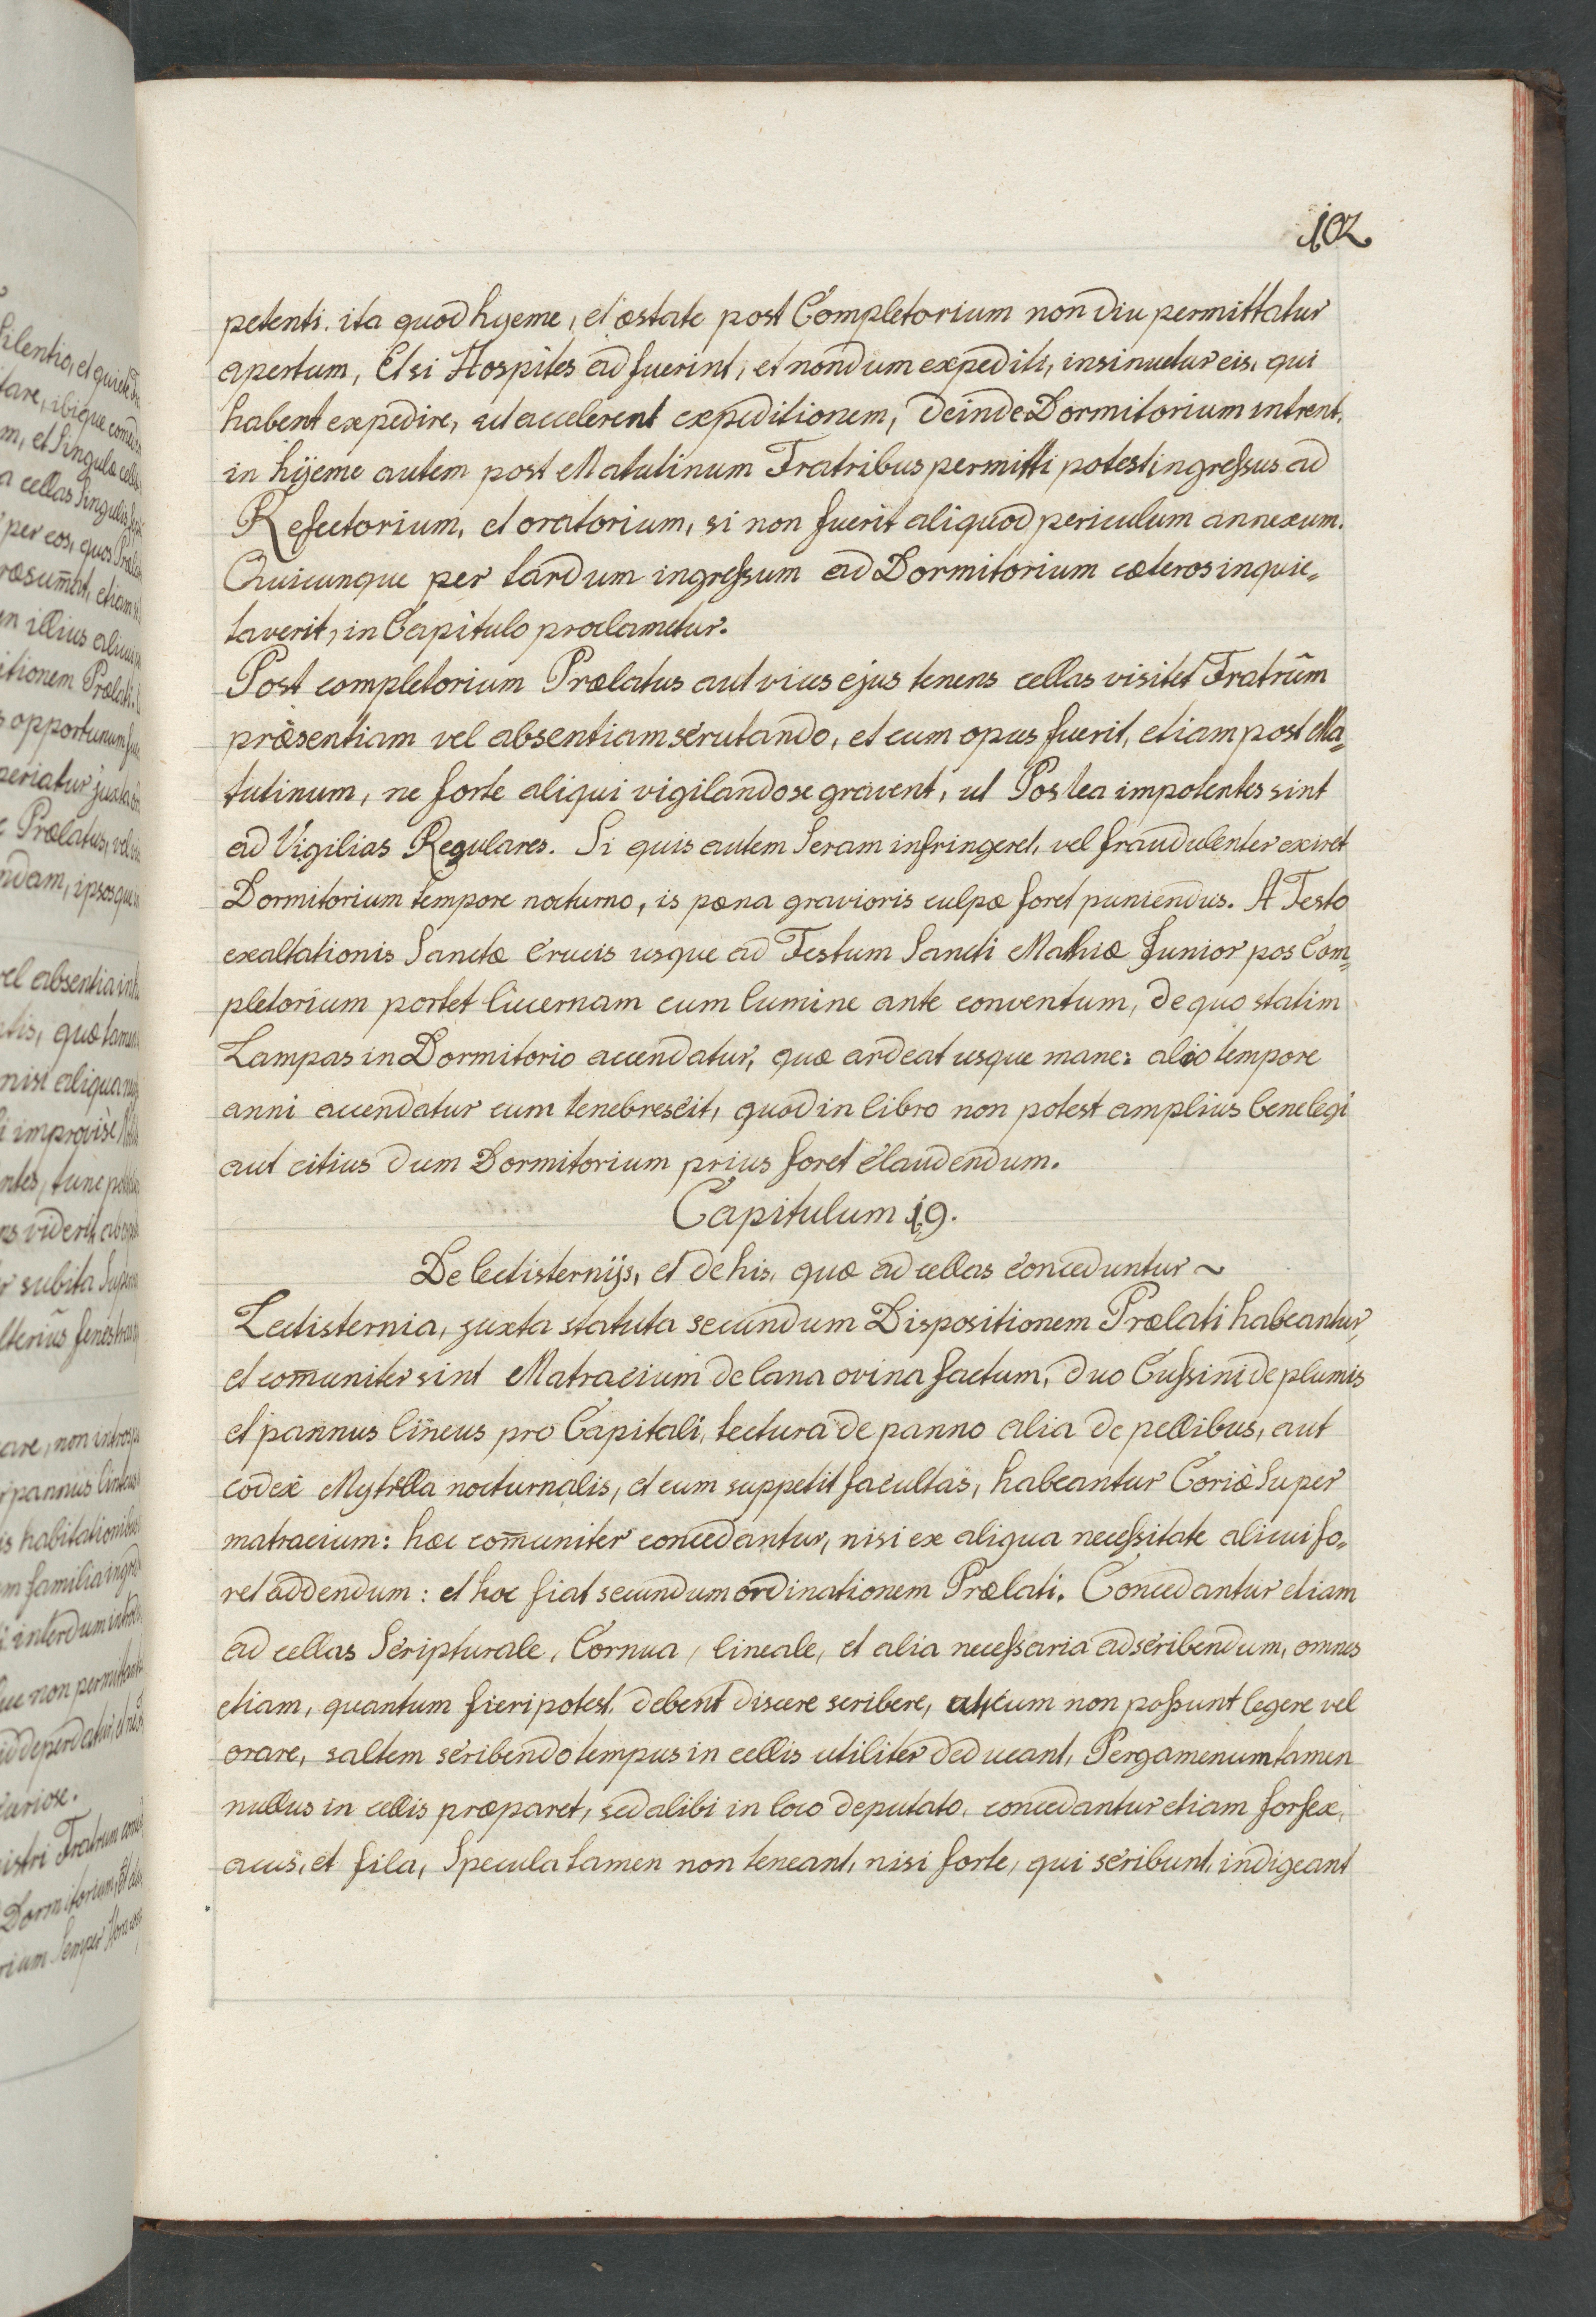 102
petenti. ita quod hyeme, et æstate post Completorium non diu permittatur
apertum, Et si Hospites adfuerint, et nondum expediti, insinuetur eis, qui
habent expedire, ut accelerent expeditionem, deinde Dormitorium intrent,
in hyeme autem post Matutinum Fratribus permitti potest ingreſsus ad
Refectorium, et oratorium, si non fuerit aliquod periculum annexum.
Quicunque per tardum ingreſsum ad Dormitorium cæteros inquie„
taverit, in Capitulo proclametur.
Post completorium Prælatus aut vices ejus tenens cellas visitet Fratrũm
præsentiam vel absentiam scrutando, et cum opus fuerit, etiam post Ma„
tutinum, ne forte aliqui vigilando se gravent, ut Postea impotentes sint
ad Vigilias Regulares. Si quis autem Seram infringeret, vel fraudulenter exiret
Dormitorium tempore nocturno, is pæna gravioris culpæ foret puniendus. A Festo
exaltationis Sanctæ Crucis usque ad Festum Sancti Mathiæ Junior pos Com„
pletorium portet lucernam cum lumine ante conventum, de quo statim
Lampas in Dormitorio accendatur, quæ ardeat usque mane: alio tempore
anni accendatur cum tenebrescit, quod in libro non potest amplius bene legi
aut citius dum Dormitorium prius foret claudendum.
Capitulum 19.
De lectisternijs, et de his, quæ ad cellas conceduntur ~
Lectisternia, juxta statuta secundum Dispositionem Prælati habeantur,
et com̄uniter sint Matracium de lana ovina factum, duo Cuſsini de plumis
et pannus lineus pro Capitali, tectura de panno alia de pellibus, aut
codex Mytrella nocturnalis, et cum suppetit facultas, habeantur Coriæ Super
matracium: hæc com̄uniter concedantur, nisi ex aliqua neceſsitate alicui fo„
ret addendum: et hoc fiat secundum ordinationem Prælati. Concedantur etiam
ad cellas Scripturale, Cornua, lineale, et alia neceſsaria ad scribendum, omnes
etiam, quantum fieri potest, debent discere scribere, ut, cum non poſsunt legere vel
orare, saltem scribendo tempus in cellis utiliter deducant, Pergamenum tamen
nullus in cellis præparet, sed alibi in loco deputato, concedantur etiam forfex,
acus, et fila, Specula tamen non teneant, nisi forte, qui scribunt, indigeant